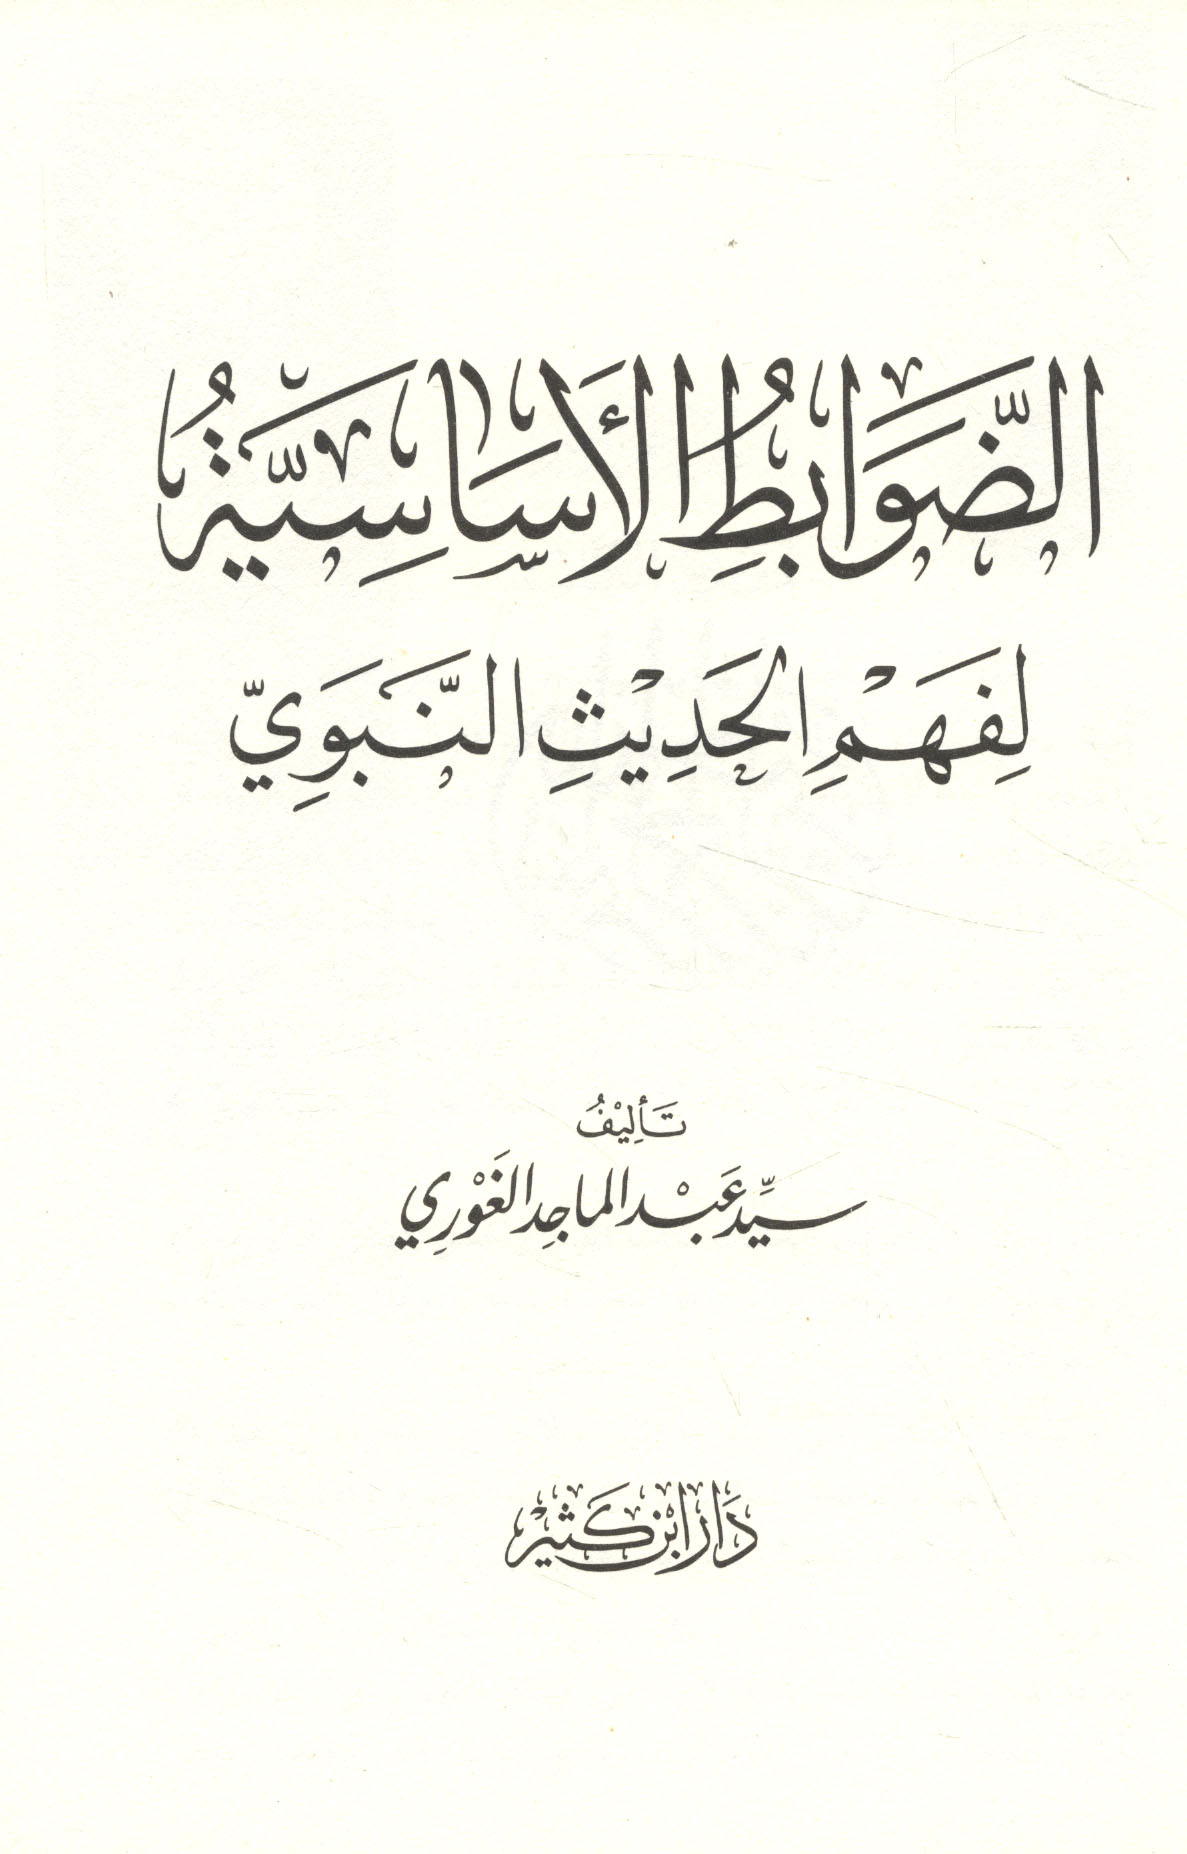 الضَّوَابِطُ الأَسَاسِيَّةُ
لِفَهْمِ الحَدِيْثِ النَّبَوِيِّ
تَأَلِيْفُ
سيِّد عَبْد الماجِد الغَوْرِي
دَار ابْن كَثِيْر